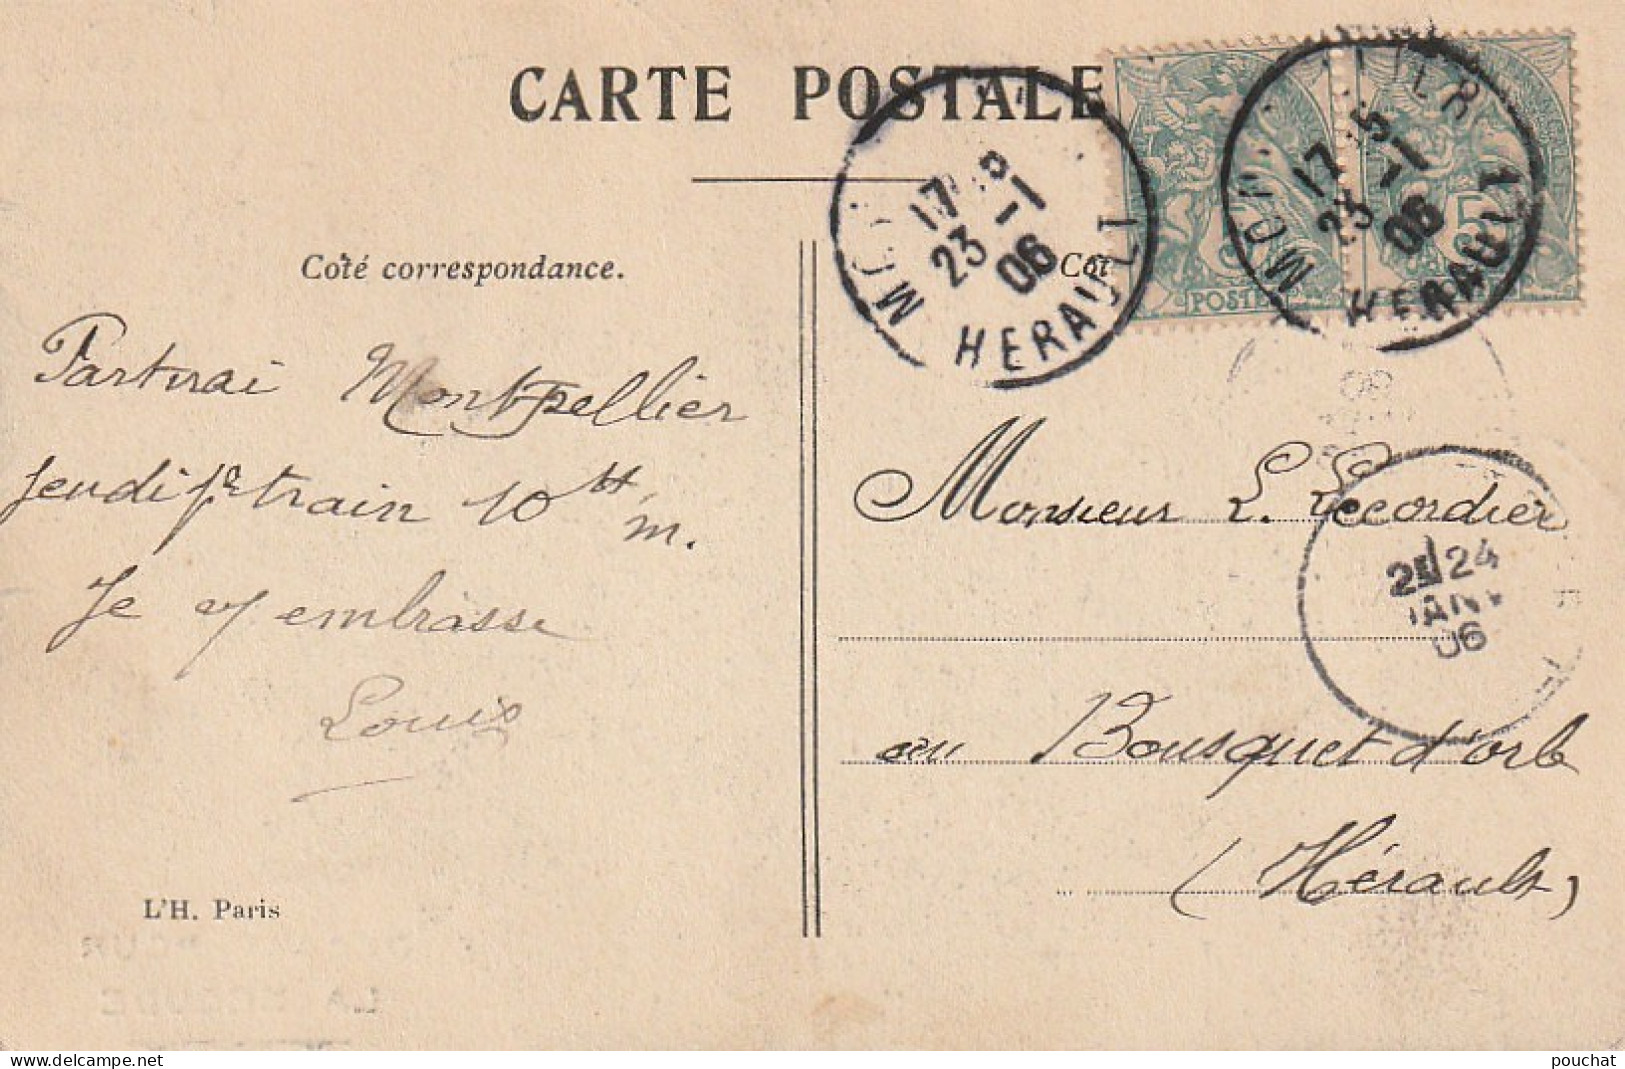 CARTE POSTALE
Coté correspondance.
Partirai Montpellier
jeudi pr train 10 H
m.
Je t'embrasse
Louis
L'H. Paris
Monsieur L. Lecordier
au Bousquet d'orb
(Hérault)
23 -1
06
HERAULT
POSTE
17
23 -1
06
HERAULT
24
JANV
06
pouchat
delcampe.net